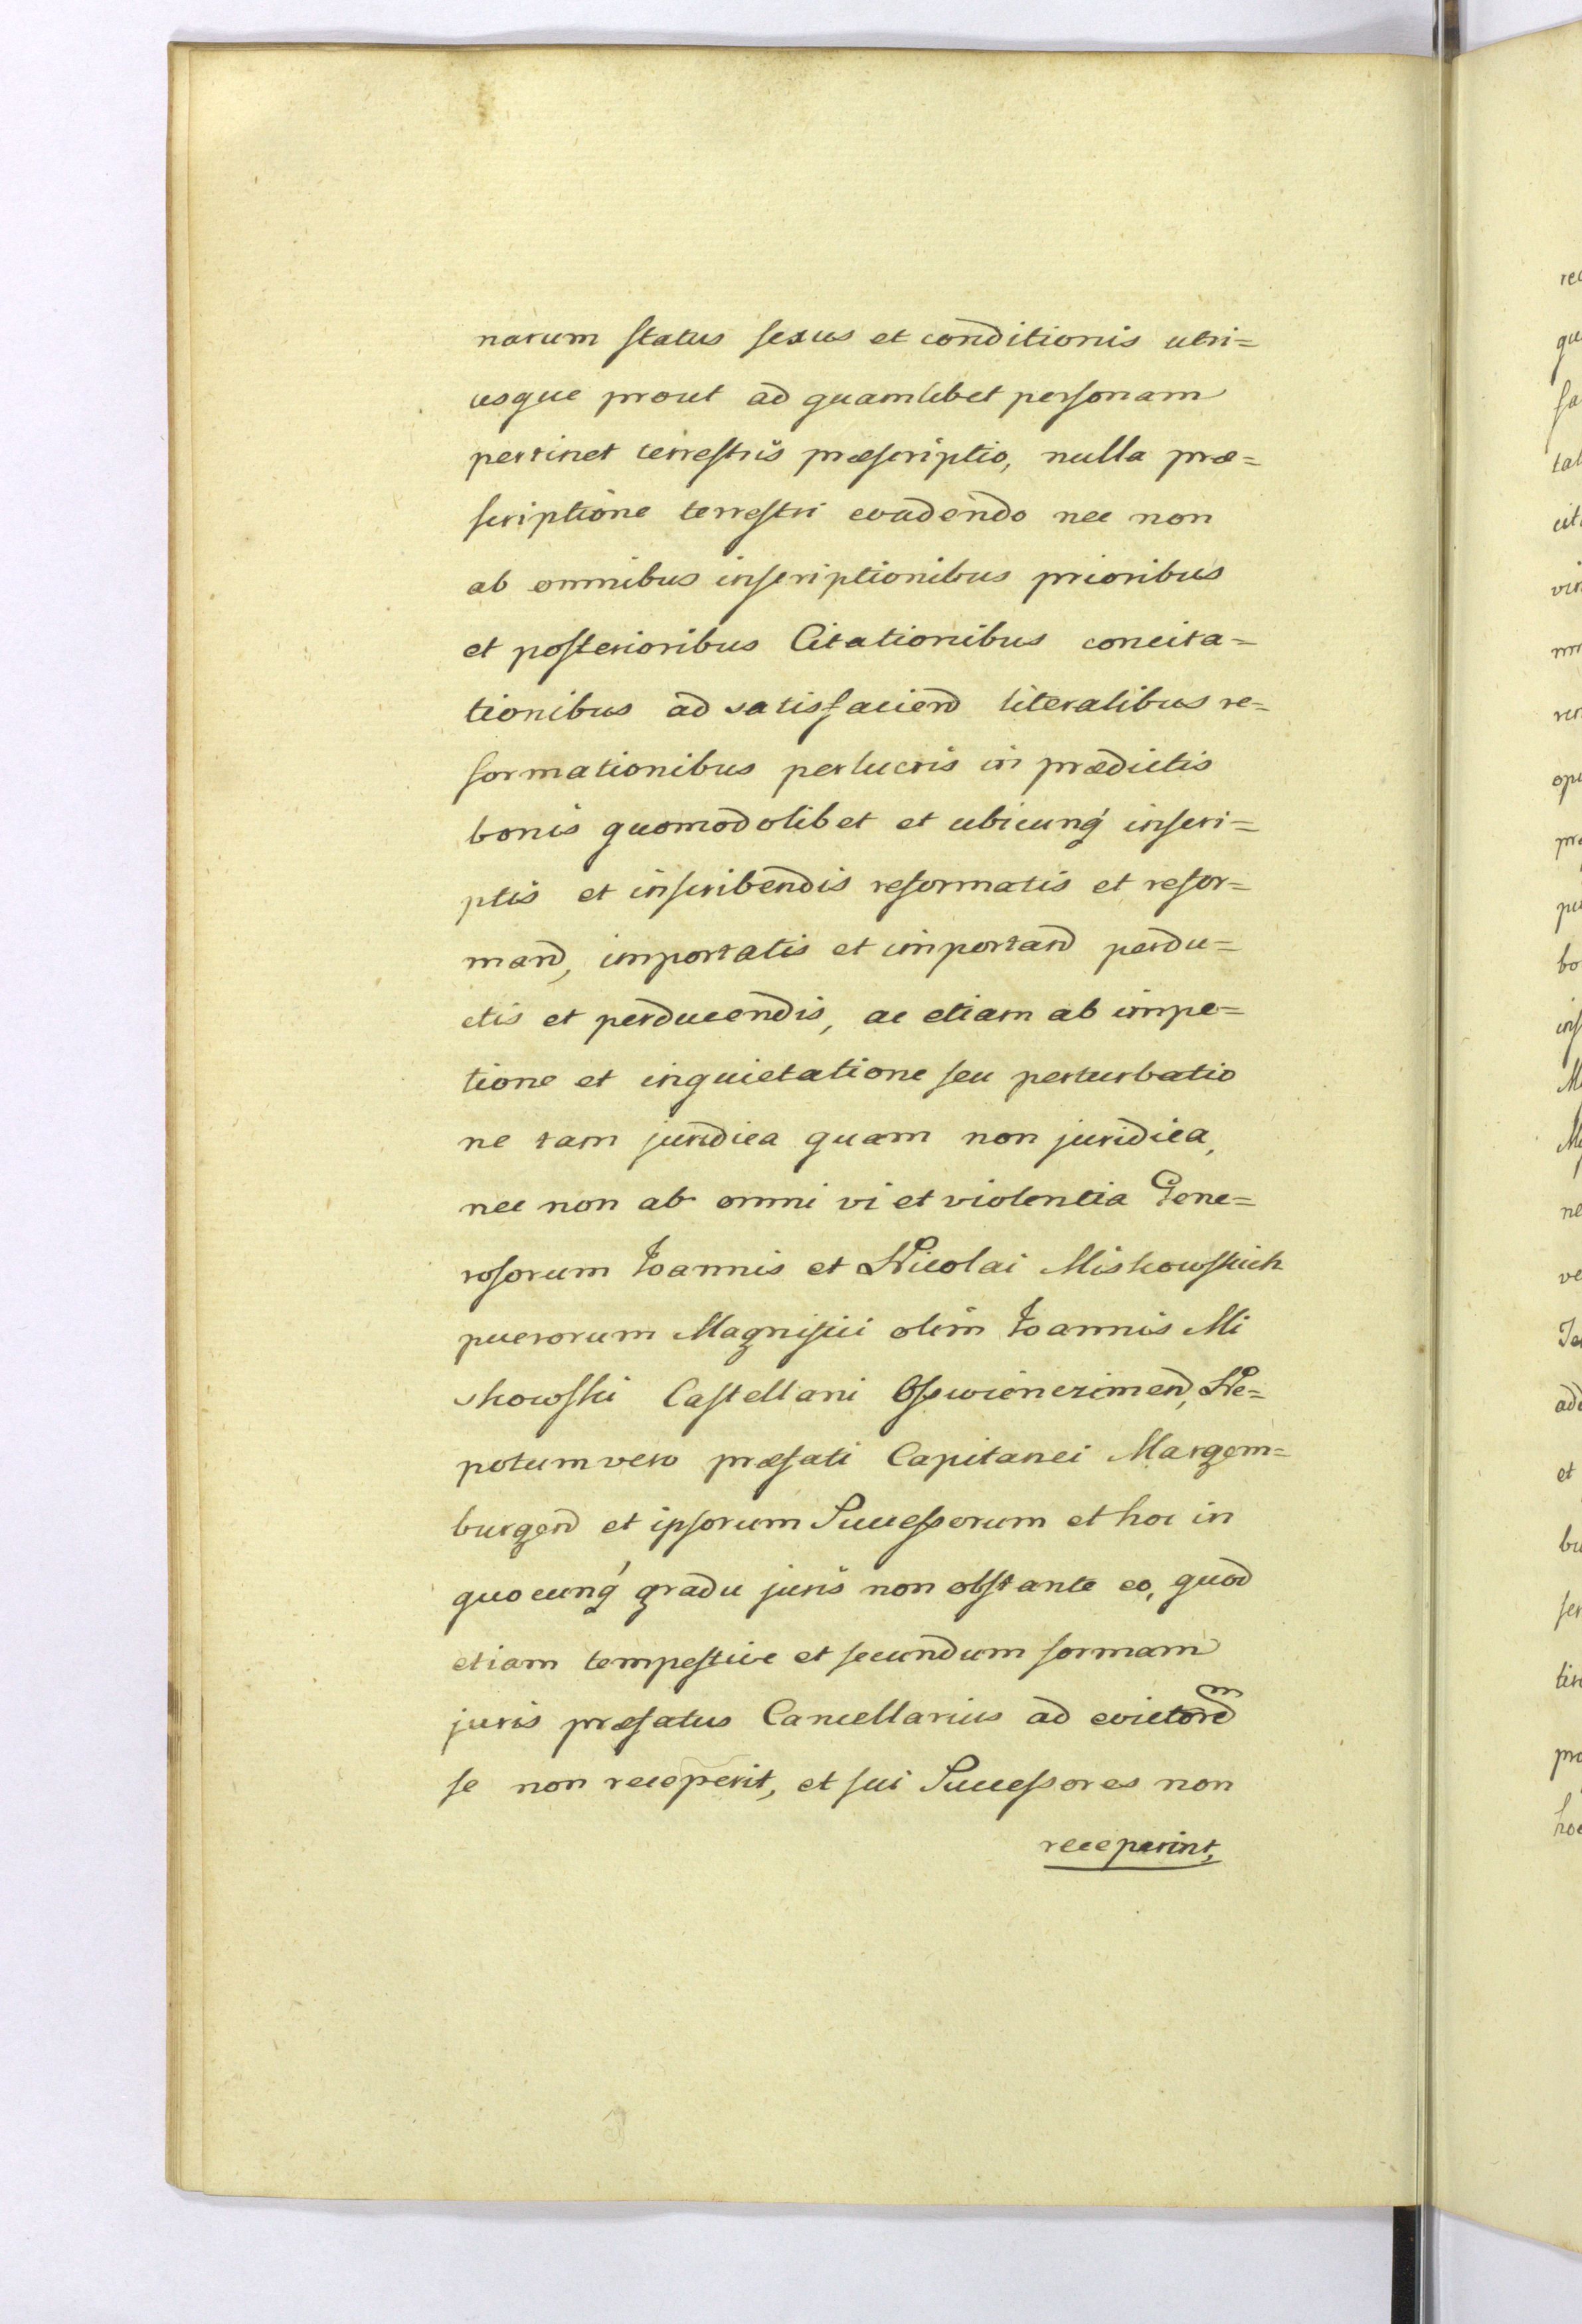 narum status sexus et conditionis utri=
usque prout ad quamlibet personam
pertinet terrestris præscriptio, nulla præ=
scriptione terrestri evadendo nec non
ab omnibus inscriptionibus prioribus
et posterioribus Citationibus concita=
tionibus ad satisfaciend literalibus re=
formationibus perlucris in prædictis
bonis quomodolibet et ubicunq́ inscri=
ptis et inscribendis reformatis et refor=
mand, importatis et importand perdu=
ctis et perducendis, ac etiam ab impe=
tione et inquietatione seu perturbatio
ne tam juridica quam non juridica,
nec non ab omni vi et violentia Gene=
rosorum Joannis et Nicolai Miskowskich
puerorum Magnifici olim Joannis Mi
skowski Castellani Osswienczimen, Ne=
potum vero præfati Capitanei Margem=
burgen et ipsorum Successorum et hoc in
quocunq́ gradu juris non obstante eo, quod
etiam tempestive et secundum formam
juris præfatus Cancellarius ad evictorem
se non receperit, et sui Successores non
receperint,